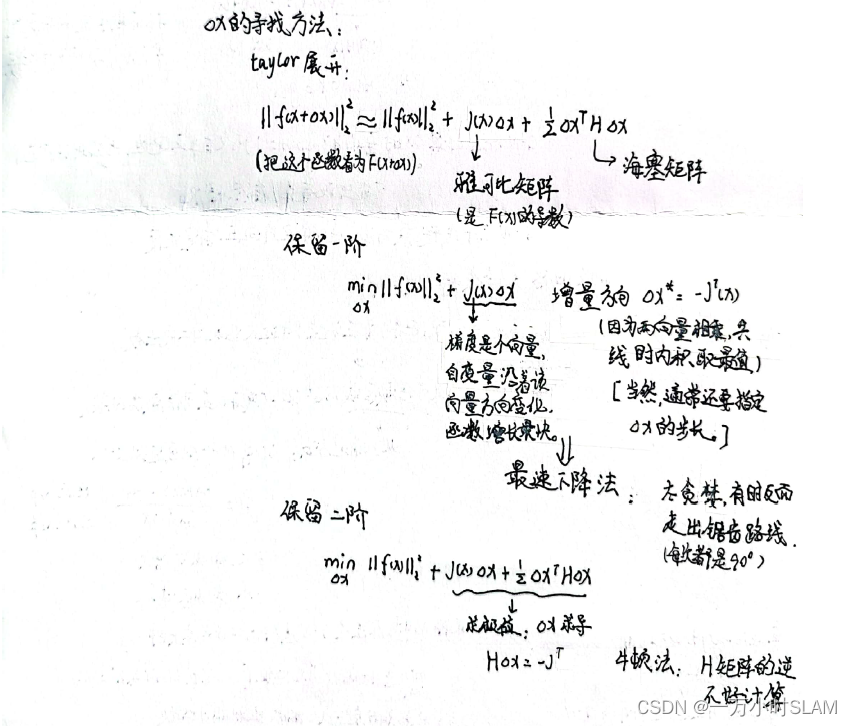 Δx的寻找方法:
taylor展开:
||f(x+Δx)||₂² ≈ ||f(x)||₂² + J(x)Δx + ½Δxᵀ H Δx
(把这个函数看为F(x+Δx))
雅可比矩阵
(是F(x)的导数)
海塞矩阵
保留一阶
min ||f(x)||₂² + J(x)Δx
Δx
梯度是个向量,
自变量沿着该
向量方向变化,
函数增长最快。
增量方向 Δx* = -Jᵀ(x)
(因为两向量相乘,共
线时内积取最值)
[当然,通常还要指定
Δx的步长。]
最速下降法:
太贪婪,有时反而
走出锯齿路线.
(每次都是90°)
保留二阶
min ||f(x)||₂² + J(x)Δx + ½Δxᵀ H Δx
Δx
求极值:Δx求导
HΔx = -Jᵀ
牛顿法: H矩阵的逆
不好计算
CSDN @一万小时SLAM